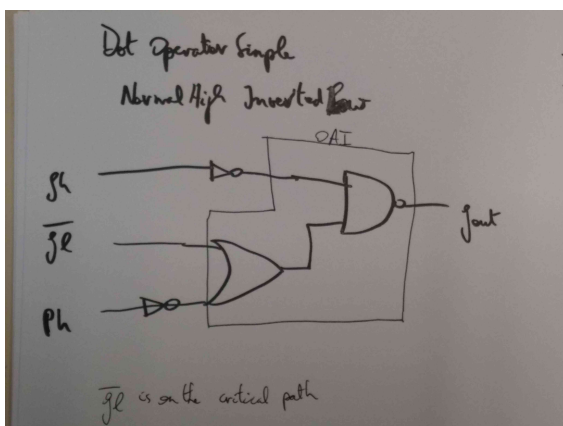 Dot Operator Simple
Normal High Inverted
OAI
gh
gl̅
gout
Ph
gl̅ is on the critical path